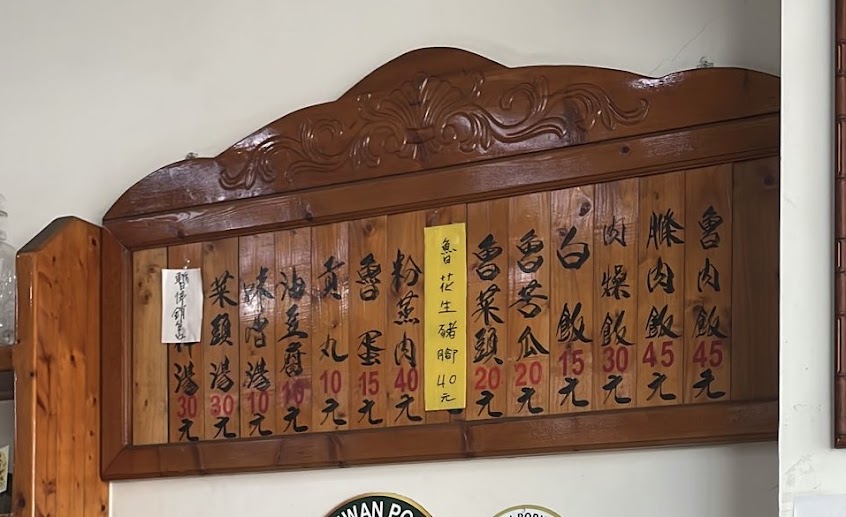 魯肉飯45元
肉飯45元
肉燥飯30元
白飯15元
魯苦瓜20元
魯菜頭20元
魯花生豬腳40元
粉蒸肉40元
魯蛋15元
貢丸10元
油豆腐10元
味噌湯10元
菜頭湯30元
暫停銷售
湯30元
IWAN PO